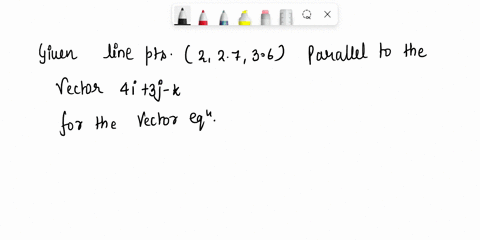 Given line pts. (2, 2.7, 3.6) Parallel to the
Vector 4i+3j-k
for the vector eqⁿ.